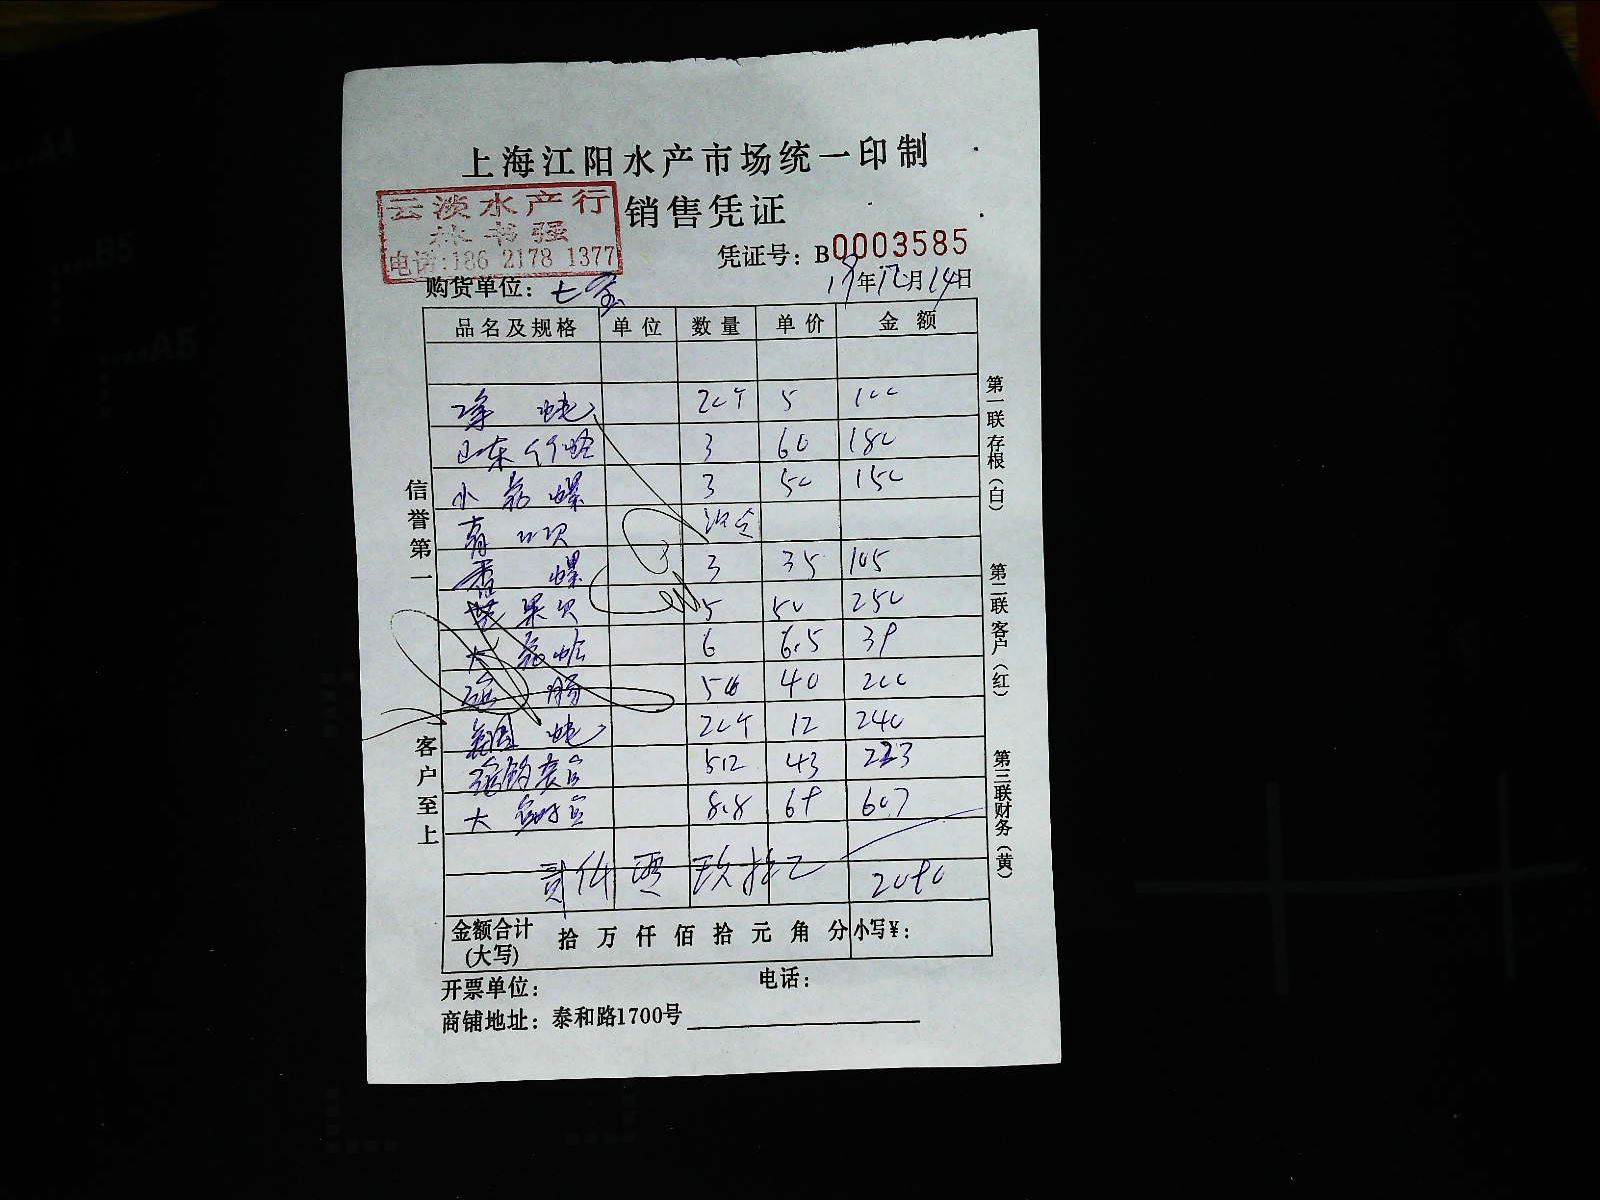 上海江阳水产市场统一印制
云淡水产行
林书强
电话:186 2178 1377
销售凭证
凭证号: B0003585
购货单位: 七宝
19年12月14日
品名及规格 单位 数量 单价 金额
20个 5 100
山东 3 60 180
小 螺 3 50 150
青口贝
螺 3 35 105
贝 5 50 250
大 蛤 6 6.5 39
肠 40 200
20个 12 240
43 223
大 8.8 69 607
贰仟零玖拾 2090
金额合计(大写) 拾 万 仟 佰 拾 元 角 分 小写¥:
开票单位: 电话:
商铺地址: 泰和路1700号
信誉第一
客户至上
第一联存根(白)
第二联客户(红)
第三联财务(黄)